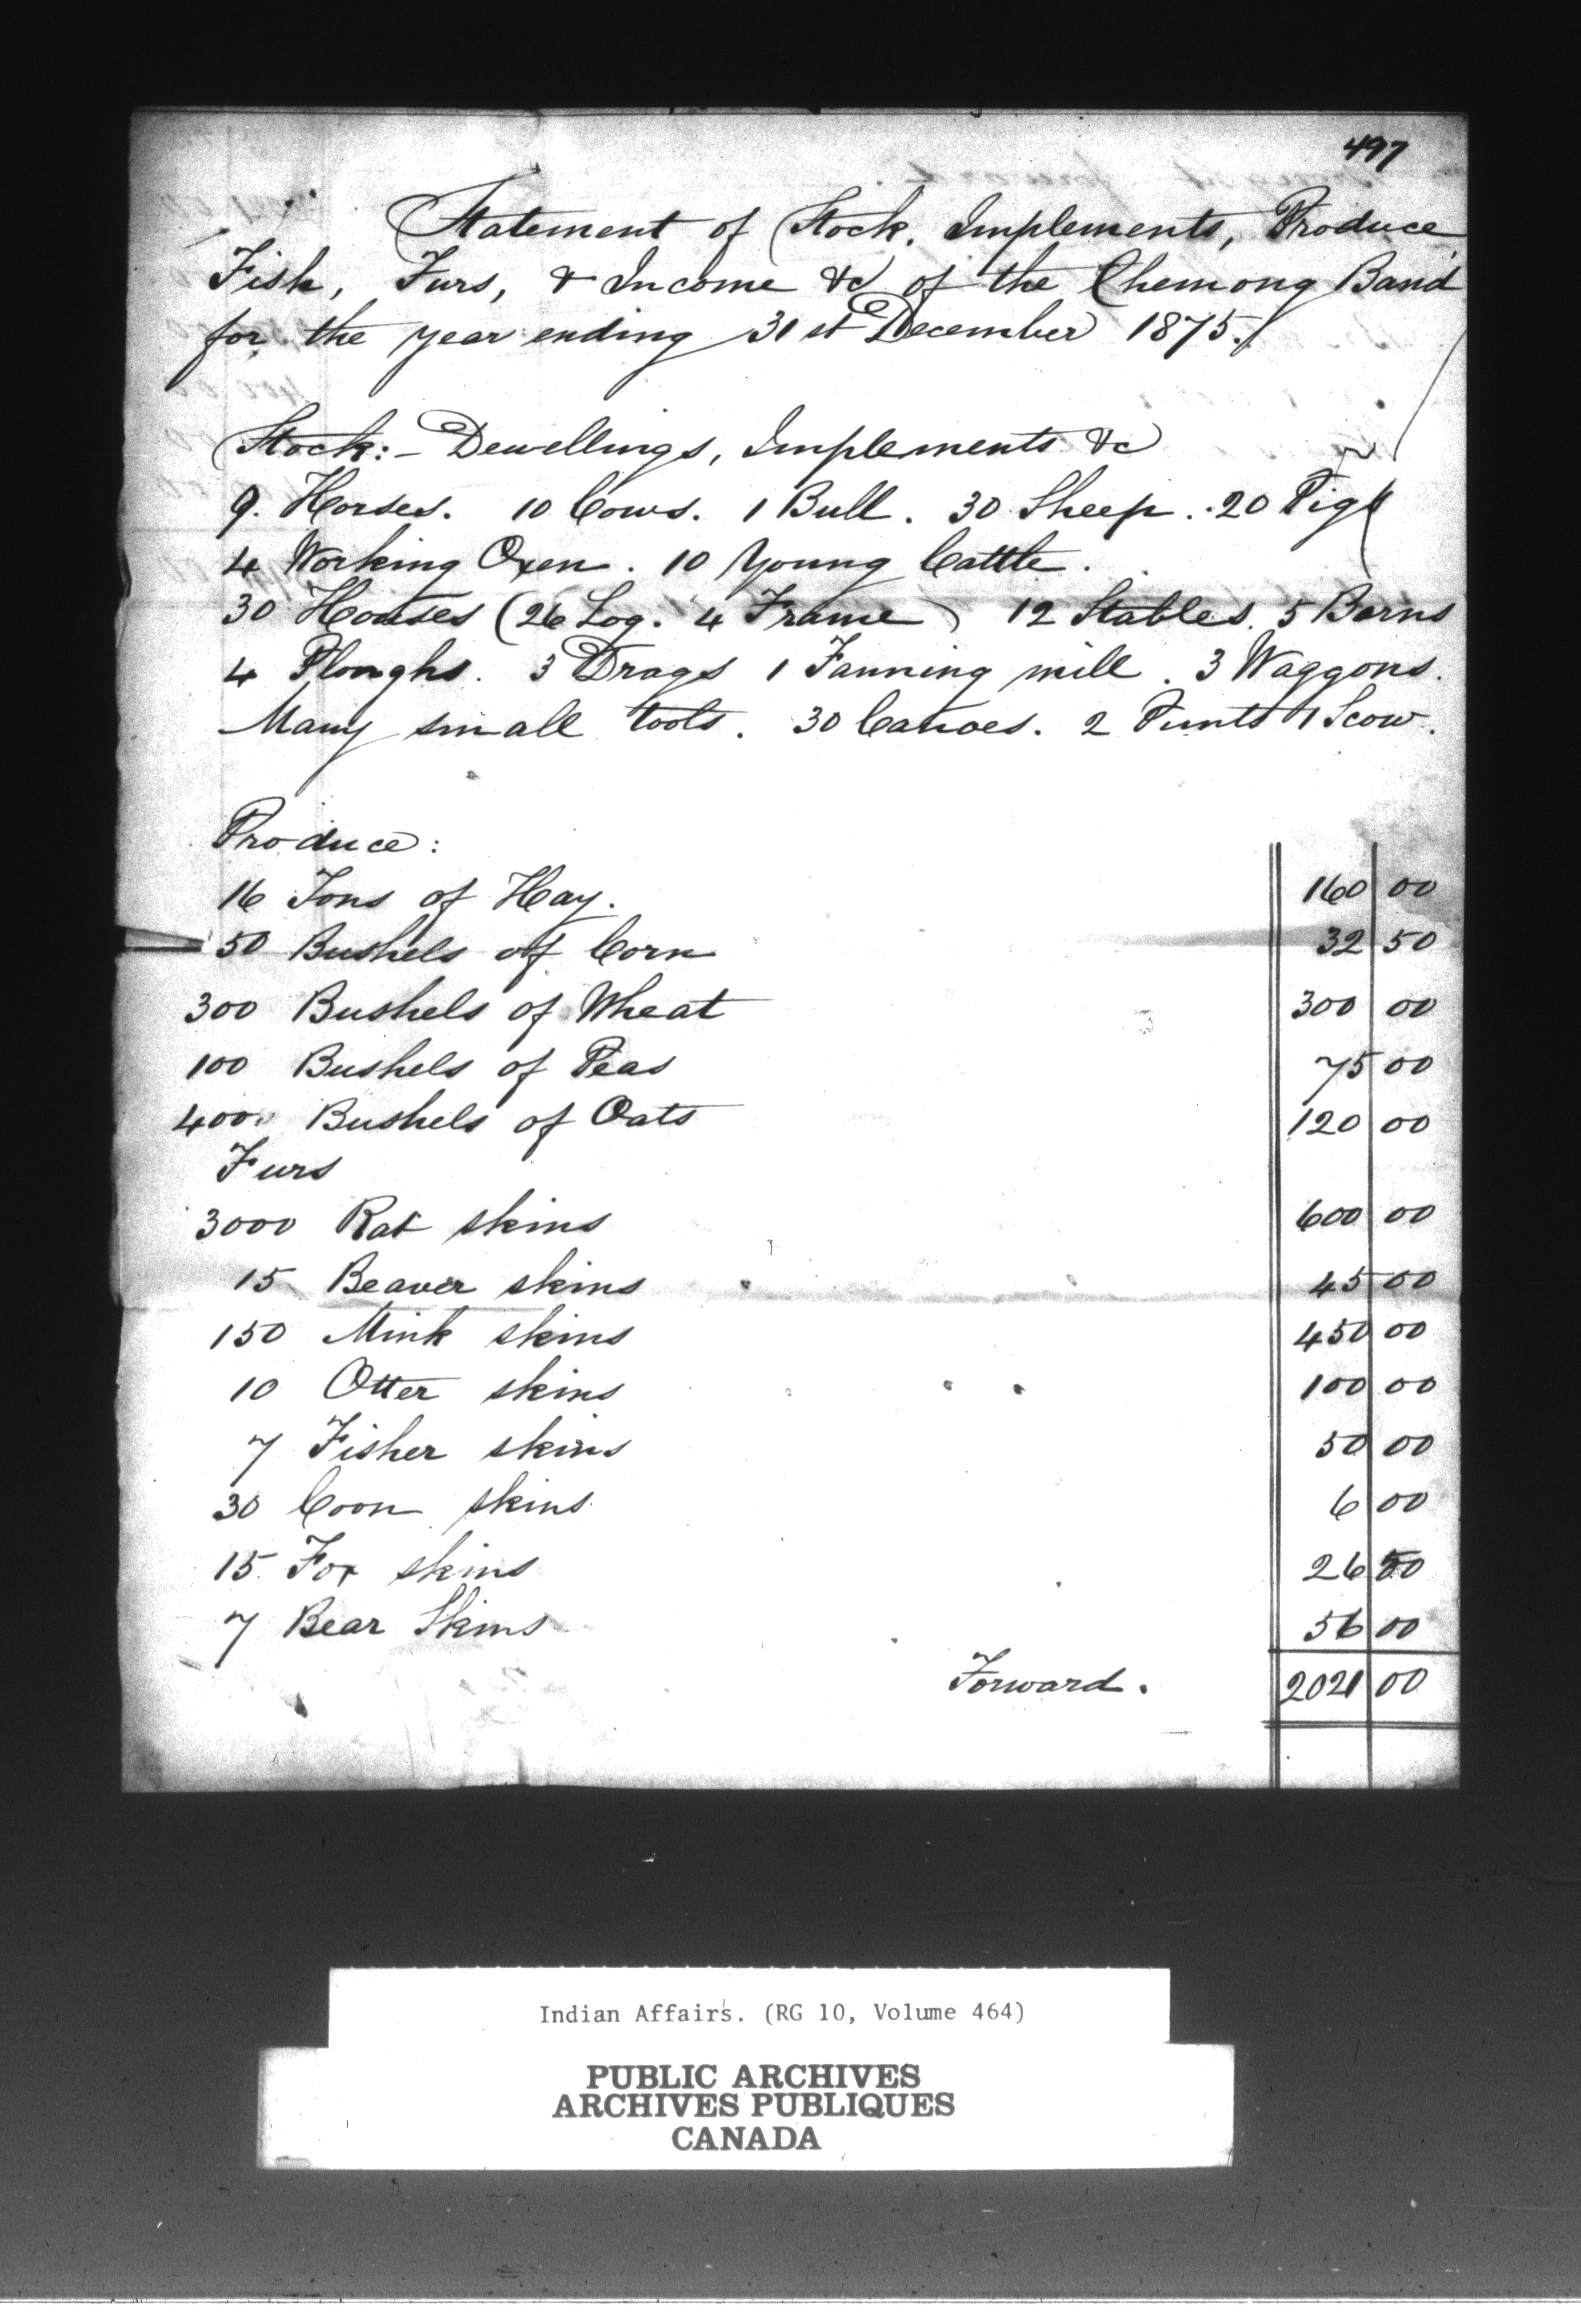 497
Statement of Stock, Implements, Produce
Fish, Furs, & Income &c of the Chemong Band
for the year ending 31st December 1875.
Stock:- Dewellings, Implements &c
9. Horses. 10 Cows. 1 Bull. 30 Sheep. 20 Pigs
4 Working Oxen. 10 Young Cattle.
30 Houses (26 Log. 4 Frame) 12 Stables. 5 Barns
4 Ploughs. 3 Drags 1 Fanning mill. 3 Waggons.
Many small tools. 30 Canoes. 2 Punts 1 Scow.
Produce:
16 Tons of Hay. 160 00
50 Bushels of Corn 32 50
300 Bushels of Wheat 300 00
100 Bushels of Peas 75 00
400 Bushels of Oats 120 00
Furs
3000 Rat skins 600 00
15 Beaver skins 45 00
150 Mink skins 450 00
10 Otter skins 100 00
7 Fisher skins 50 00
30 Coon skins 6 00
15 Fox skins 26 50
7 Bear Skins 56 00
Forward. 2021 00
Indian Affairs. (RG 10, Volume 464)
PUBLIC ARCHIVES
ARCHIVES PUBLIQUES
CANADA